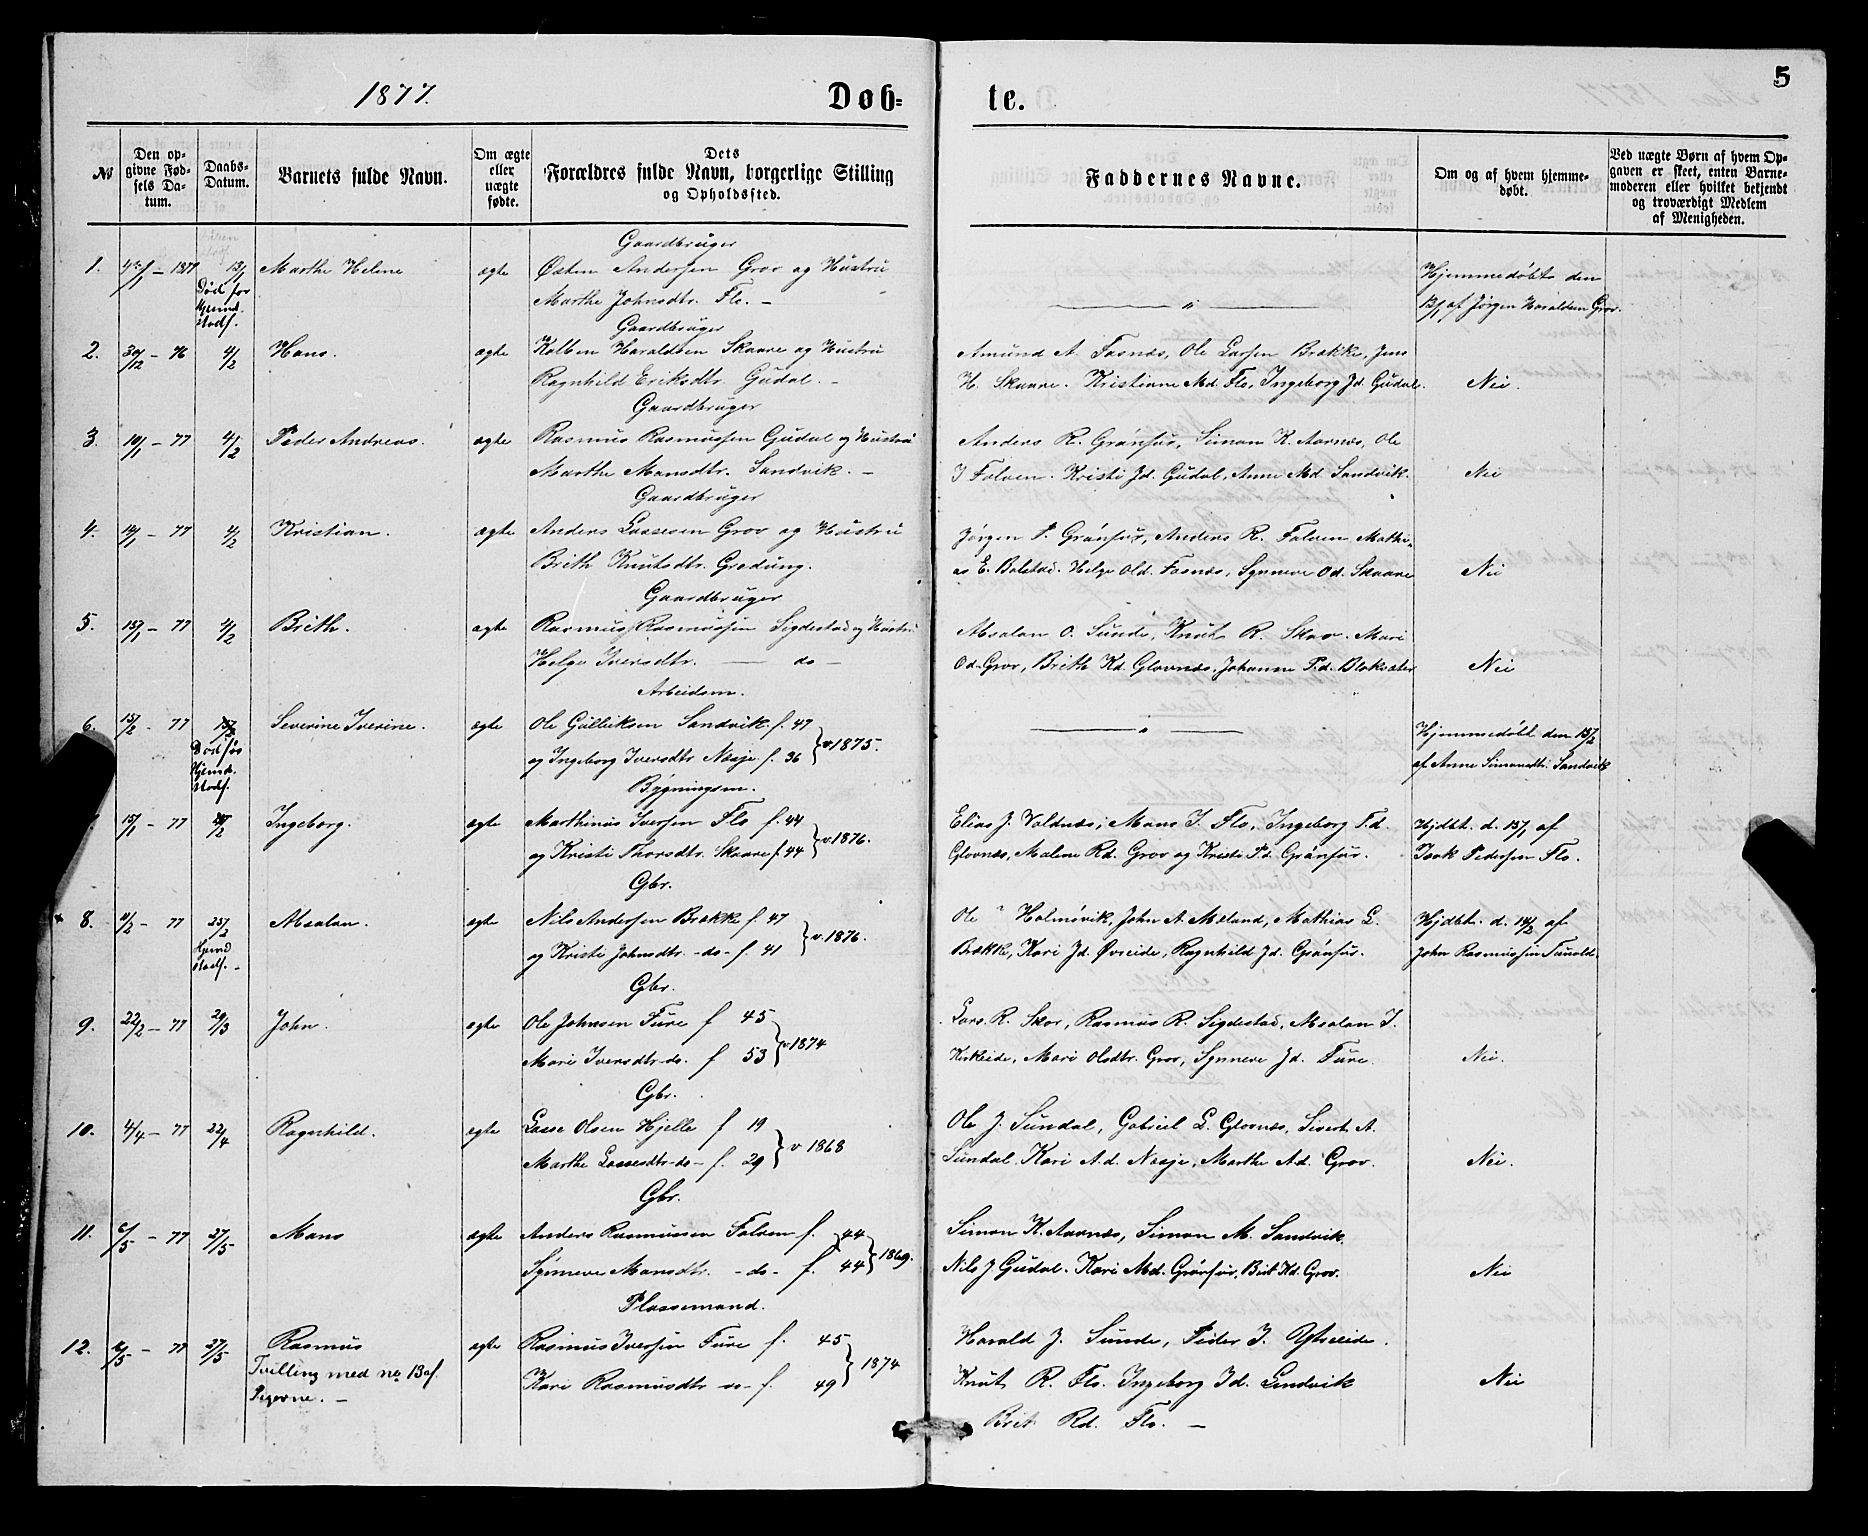 1877.
Døb=
te.
5
№
Den op-
givne Fød-
sels Da-
tum.
Daabs-
Datum.
Barnets fulde Navn.
Om ægte
eller
uægte
fødte.
Dets
Forældres fulde Navn, borgerlige Stilling
og Opholdssted.
Faddernes Navne.
Om og af hvem hjemme-
døbt.
Ved uægte Børn af hvem Op-
gaven er skeet, enten Barne-
moderen eller hvilket bekjendt
og troværdigt Medlem
af Menigheden.
Gaardbruger
1. 1877 13/1 Marthe Helene ægte Østen Andersen Grov og Hustru
Død før
Hjemd.
stadf.
Marthe Johnsdtr. Flo. —
Hjemmedøbt den
13/1 af Jørgen Haraldsen Grov.
Gaardbruger
2. 30/12 - 76 4/2 Hans. ægte Kolben Haraldsen Skaare og Hustru
Ragnhild Eriksdtr. Gudal. —
Amund A. Fosnæs, Ole Larsen Brække, Jens
H. Skaare. Kristiane Md. Flo, Ingeborg Jd. Gudal. Nei.
Gaardbruger
3. 10/1 - 77 4/2 Peder Andreas. ægte Rasmus Rasmussen Gudal og Hustru
Marthe Mansdtr. Sandvik. —
Anders R. Grønfur, Simon K. Aarnæs, Ole
J Folven. Kristi Jd. Gudal, Anne Md Sandvik. Nei
Gaardbruger
4. 14/1 - 77 4/2 Kristian. ægte Anders Lassesen Grov og Hustru
Brith Knutsdtr. Grodung.
Jørgen P. Grønfur, Anders R. Folven Mathi-
as E. Bolstad. Helge Old. Fosnæs, Synneve Od. Skaare Nei
Gaardbruger
5. 15/1 - 77 4/2 Brith. ægte Rasmus Rasmussen Sigdestad og Hustru
Helge Iversdtr. — do —
Absalon O. Sunde, Knut R. Skor. Mari
Od. Grov, Brith Kd. Glovnæs, Johanne P.d. Bleksæter Nei
Arbeidsm.
6. 15/2 - 77 15/2 Severine Iverine. ægte Ole Gulliksen Sandvik f. 47
Død før
Hjemd.
stadf.
og Ingeborg Iversdtr Næsje f. 36 } v. 1875.
Hjemmedøbt den 15/2
af Anne Simonsdtr. Sandvik
Bygningsm.
15/1 - 77 Ingeborg. ægte Marthinus Iversen Flo f. 44
og Kristi Thorsdtr. Skaare f. 44 } v. 1876.
Elias J. Valdnæs, Mons J. Flo, Ingeborg P.d.
Glovnæs, Malene Rd. Grov og Kristi Pd. Grønfur.
Hjdbt. d. 15/1 af
Isak Pedersen Flo.
Gbr.
8. 11/2 - 77 25/2 Absalon. ægte Nils Andersen Brække f. 47
Hjemd
stadf. -
og Kristi Johnsdtr. - do - f. 41 } v. 1876.
Ole Holmøvik, John A. Meland, Mathias L.
Brække, Kari Jd. Øvreide, Ragnhild Jd. Grønfur.
Hjdbt. d. 14/2 af
John Rasmussen
Gbr.
9. 22/2 - 77 29/3 John. ægte Ole Johnsen Fure f 45
Mari Iversdtr - do. f 53 } v. 1874
Lars. R. Skor, Rasmus R. Sigdestad, Absalon I.
Kirkeide, Mari Olsdtr. Grov, Synneve Jd. Fure. Nei.
Gbr.
10. 4/4 - 77 22/4 Ragnhild. ægte Lasse Olsen Hjelle f 19
Marthe Lassesdtr - do - f. 29 } v 1868
Ole J. Sundal, Gabriel L. Glovnæs, Sivert A.
Sundal. Kari A.d. Næsje, Marthe Ad. Grov. Nei.
Gbr.
11. 6/5 - 77 27/5 Mons ægte Anders Rasmussen Folven f. 44
Synneve Monsdtr. - do - f. 44 } 1869.
Simon K. Aarnæs, Simon M. Sandvik
Nils J Gudal. Kari Md. Grønfur, Brit Kd. Grov. Nei
Plassemand.
12. 77 27/5 Rasmus ægte Rasmus Iversen Fure f. 45
Tvilling med no 13 af
Pigerne. —
Kari Rasmusdtr - do - f. 49 } 1874
Harald J. Sunde, Peder J. Ytreeide.
Knut R. Flo. Ingeborg Id. Lendvik Nei
Brit Rd. Flo. —